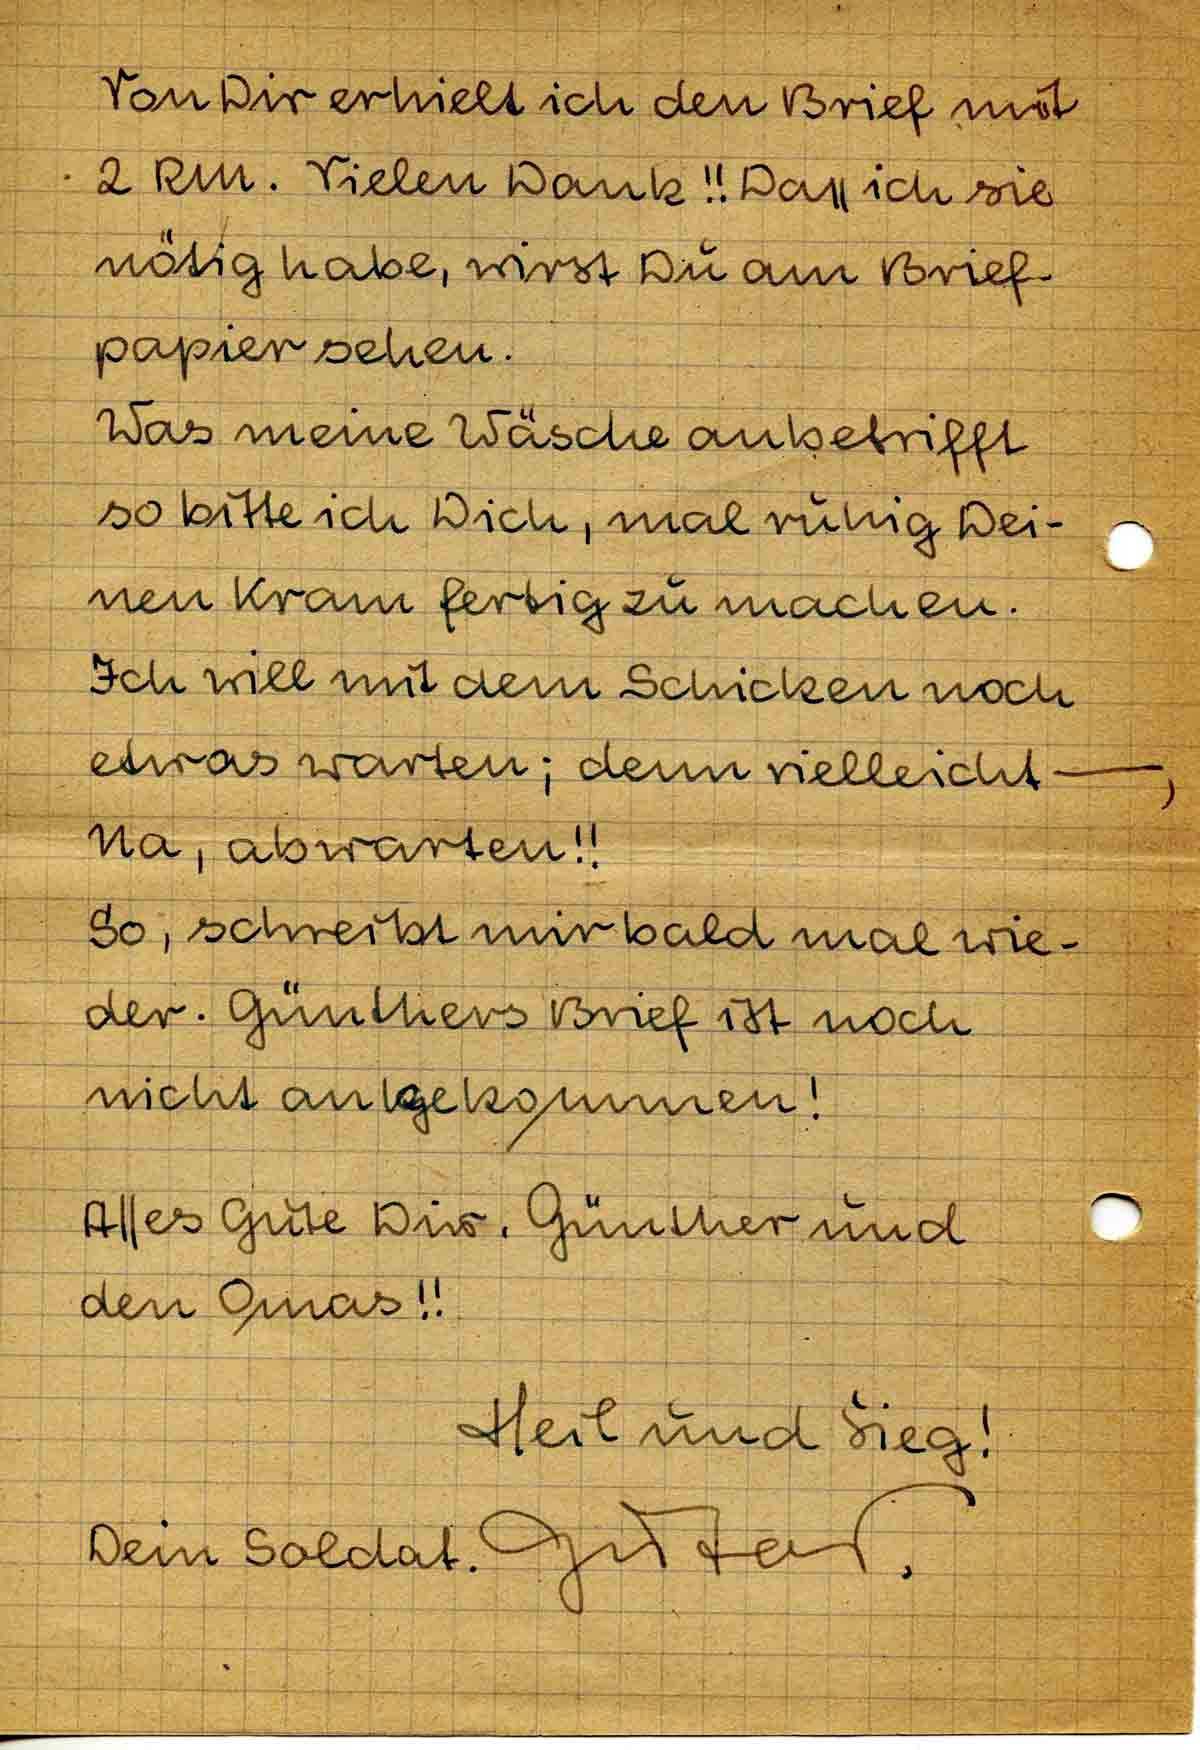 Von Dir erhielt ich den Brief mit
2 RM. Vielen Dank!! Daß ich sie
nötig habe, wirst Du am Brief-
papier sehen.
Was meine Wäsche anbetrifft
so bitte ich Dich, mal ruhig Dei-
nen Kram fertig zu machen.
Ich will mit dem Schicken noch
etwas warten; denn vielleicht —,
Na, abwarten!!
So, schreibt mir bald mal wie-
der. Günthers Brief ist noch
nicht angekommen!
Alles Gute Dir. Günther und
den Omas!!
Heil und Sieg!
Dein Soldat. Gustav.